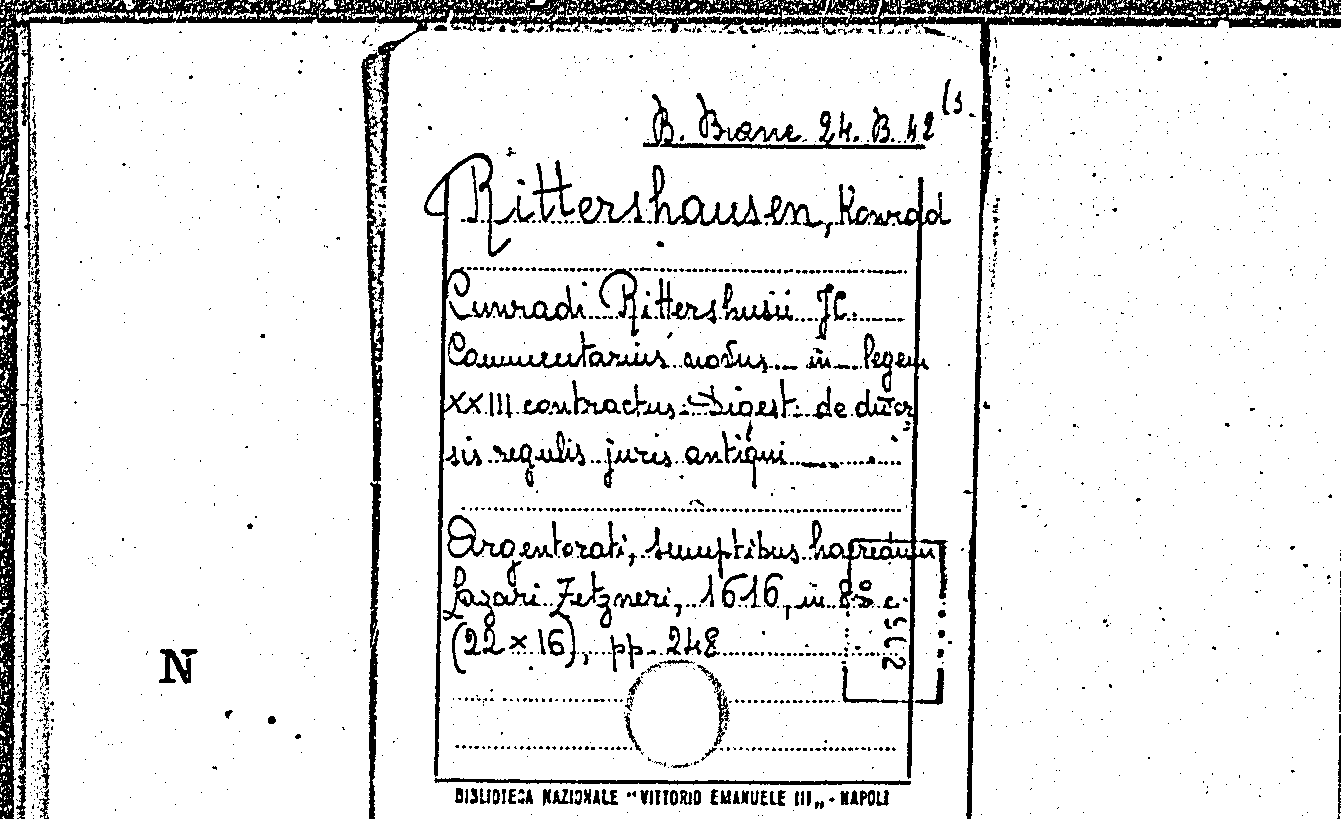 B. Branc 24. B. 42 (3.
Rittershausen, Konrad
Cunradi Rittershusii JC.
Commentarius novus in legem
XXIII contractus. Digest. de diver
sis regulis juris antiqui
Argentorati, sumptibus haeredum
Lazari Zetzneri, 1616, in 8º c.
(22 × 16), pp. 248
N
BIBLIOTECA NAZIONALE "VITTORIO EMANUELE III„ - NAPOLI